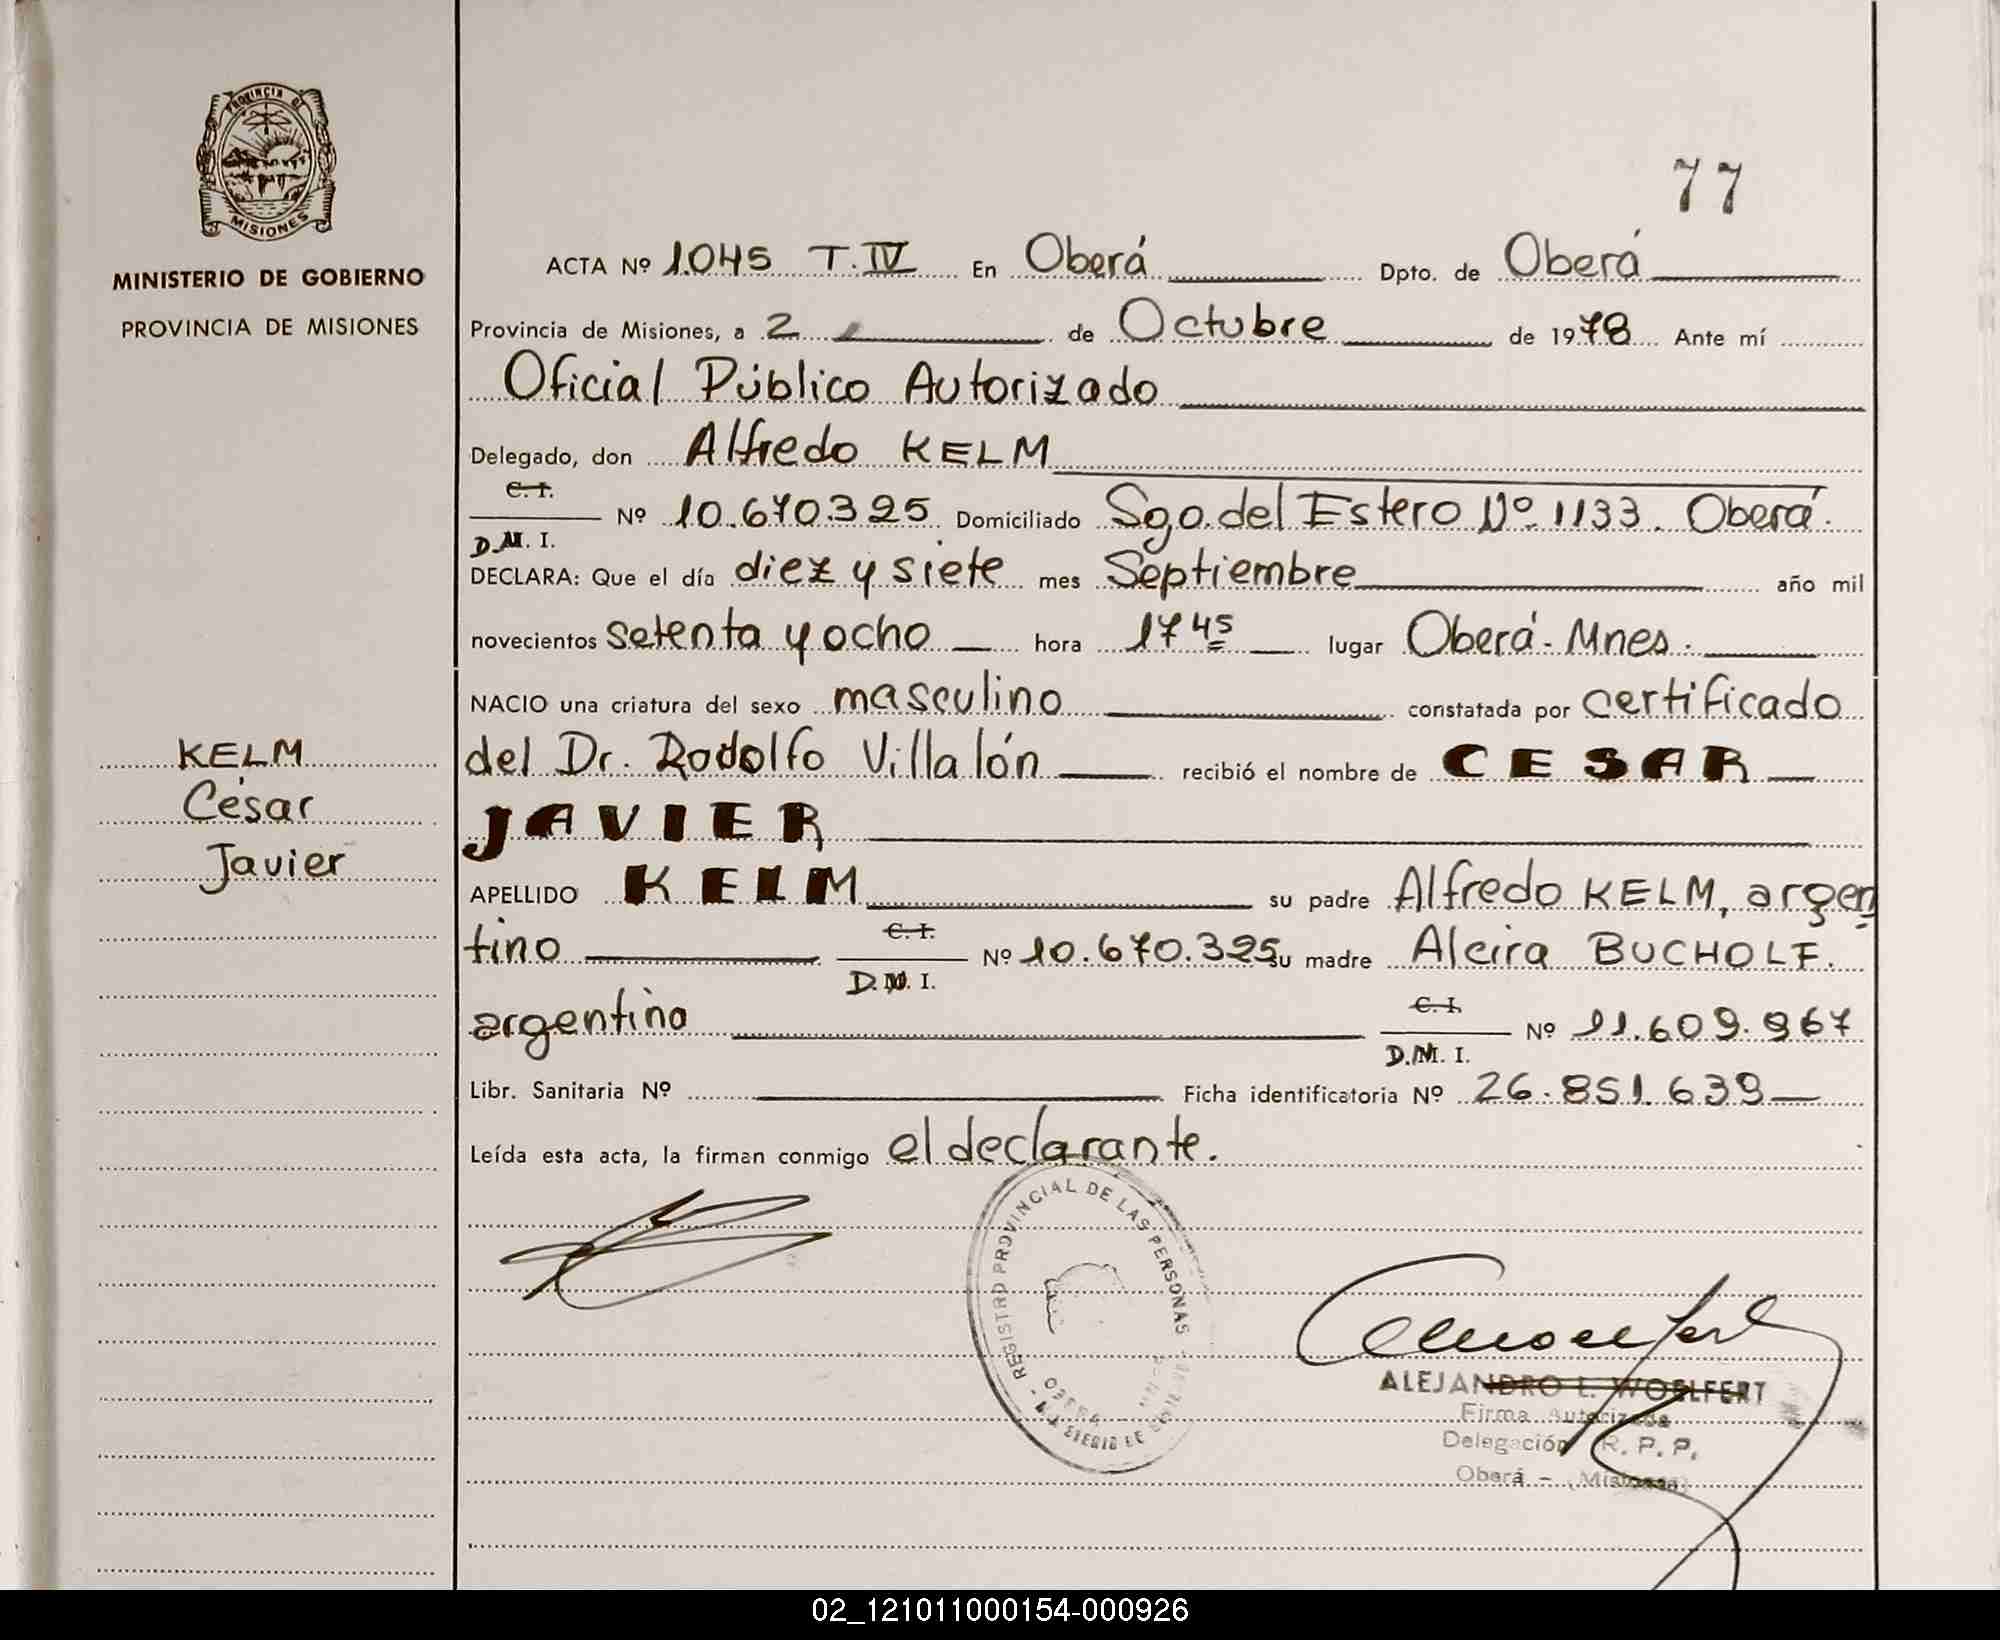 PROVINCIA DE
MISIONES
MINISTERIO DE GOBIERNO
PROVINCIA DE MISIONES
77
ACTA Nº 1.045 T. IV En Oberá Dpto. de Oberá
Provincia de Misiones, a 2 de Octubre de 1978 Ante mí
Oficial Público Autorizado
Delegado, don Alfredo KELM
C. I.
D.M. I.
Nº 10.670.325 Domiciliado Sgo. del Estero Nº 1133. Oberá.
DECLARA: Que el día diez y siete mes Septiembre año mil
novecientos setenta y ocho hora 17 45 lugar Oberá - Mnes.
NACIO una criatura del sexo masculino constatada por certificado
del Dr. Rodolfo Villalón recibió el nombre de CESAR
JAVIER
APELLIDO KELM su padre Alfredo KELM, argen
tino C. I. D.M. I. Nº 10.670.325 su madre Alcira BUCHOLF.
argentina C. I. D.M. I. Nº 11.609.967
Libr. Sanitaria Nº Ficha identificatoria Nº 26.851.639
Leída esta acta, la firman conmigo el declarante.
KELM
César
Javier
REGISTRO PROVINCIAL DE LAS PERSONAS
OBERA
ALEJANDRO L. WOELFERT
Firma Autorizada
Delegación R. P. P.
Oberá - (Misiones)
02_121011000154-000926